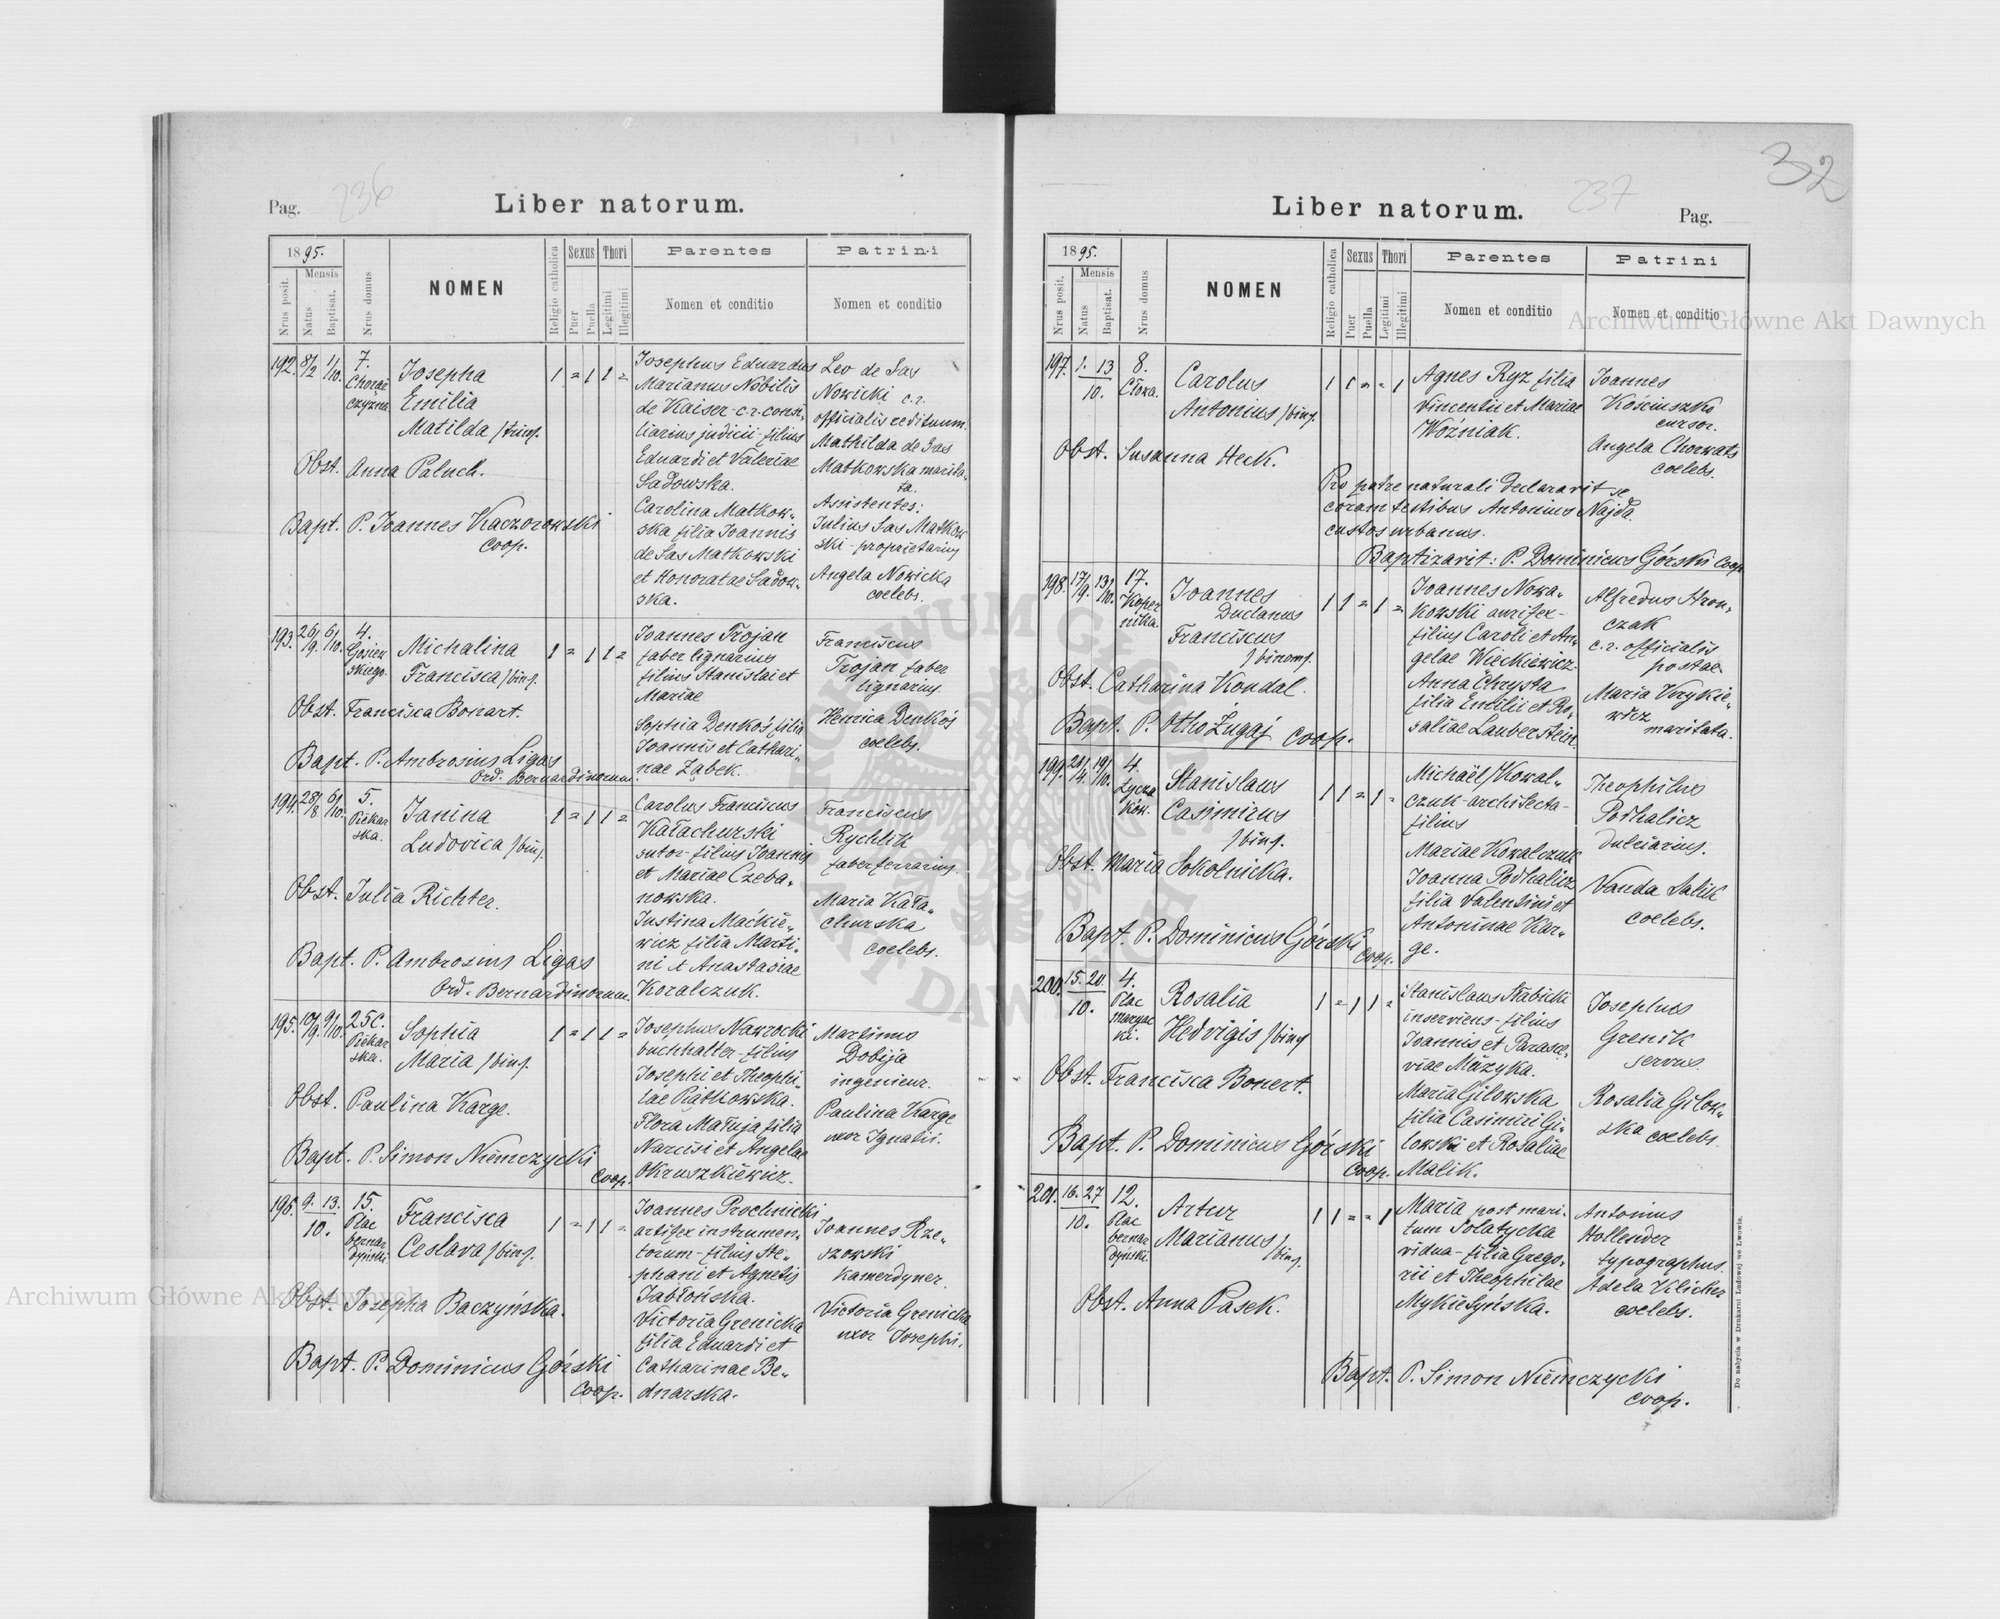 32
236
Pag.
Liber natorum.
1895.
Mensis
Nrus posit.
Natus
Baptisat.
Nrus domus
NOMEN
Religio catholica
Sexus
Puer
Puella
Thori
Legitimi
Illegitimi
Parentes
Nomen et conditio
Patrini
Nomen et conditio
192. 8/2 1/10. 7.
Chorąż
czyzna.
Josepha
Emilia
Matilda /trinġ.
1 = 1 1 =
Josephus Eduardus
Marianus Nobilis
de Kaiser - c.r. consi„
liarius judicii - filius
Eduardi et Valeriae
Sadowska.
Carolina Matkow„
ska filia Joannis
de Sas Matkowski
et Honoratae Sadow„
ska.
Leo de Sas
Nowicki c.r.
officialis redituum.
Mathilda de Sas
Matkowska marita„
ta.
Assistentes:
Julius Sas Matkow
ski - proprietarius
Angela Nowicka
coelebs.
Obst. Anna Paluch.
Bapt. P. Joannes Kaczorowski
coop.
193. 26/9. 6/10. 4.
Gosiew
skiego.
Michalina
Francisca /bing.
1 = 1 1 =
Joannes Trojan
faber lignarius
filius Stanislai et
Mariae
Sophia Denkoś filia
Joannis et Cathari„
nae Ząbek.
Franciscus
Trojan faber
lignarius.
Henrica Denkoś
coelebs.
Obst. Francisca Bonart.
Bapt. P. Ambrosius Ligas
Ord. Bernardinorum.
194. 28/8 6/10. 5.
Piekar
ska.
Janina
Ludovica /bing.
1 = 1 1 =
Carolus Franciscus
Kałachurski
sutor - filius Joannis
et Mariae Czeba„
nowska.
Justina Maćkie„
wicz filia Marti„
ni et Anastasiae
Kowalczuk.
Franciscus
Rychlik
faber ferrarius.
Maria Kała„
churska
coelebs.
Obst. Julia Richter.
Bapt. P. Ambrosius Ligas
Ord. Bernardinorum.
195. 10/9. 9/10. 25C.
Piekar
ska.
Sophia
Maria /bing.
1 = 1 1 =
Josephus Nawrocki
buchhalter - filius
Josephi et Theophi„
lae Piątkowska.
Flora Matuja filia
Narcisi et Angelae
Okruszkiewicz.
Martinus
Dobija
ingenieur.
Paulina Karge
uxor Ignatii.
Obst. Paulina Karge.
Bapt. P. Simon Niemczycki
coop.
196. 9. 13.
10.
15.
Plac
bernar
dyński.
Francisca
Ceslava /bing.
1 = 1 1 =
Joannes Prochnicki
artifex instrumen„
torum - filius Ste„
phani et Agnetis
Jabłońska.
Victoria Grenicka
filia Eduardi et
Catharinae Be„
dnarska.
Joannes Rze„
szowski
kamerdyner.
Victoria Grenicka
uxor Josephi.
Obst. Josepha Baczyńska.
Bapt. P. Dominicus Górski
coop.
237
Liber natorum.
Pag.
1895.
Mensis
Nrus posit.
Natus
Baptisat.
Nrus domus
NOMEN
Religio catholica
Sexus
Puer
Puella
Thori
Legitimi
Illegitimi
Parentes
Nomen et conditio
Patrini
Nomen et conditio
197. 1. 13
10.
8.
Cłowa.
Carolus
Antonius /bing.
1 1 = = 1
Agnes Ryz filia
Vincentii et Mariae
Woźniak.
Joannes
Kościuszko
cursor.
Angela Chorwats
coelebs.
Obst. Susanna Heck.
Pro patre naturali declaravit se
coram testibus Antonius Najda.
custos urbanus.
Baptizavit: P. Dominicus Górski coop
198. 17/9. 13/10. 17.
Koper
nika.
Joannes
Duclanus
Franciscus
/binomġ.
1 1 = 1 =
Joannes Nowa„
kowski aurifex -
filius Caroli et An„
gelae Więckiewicz.
Anna Chrysta
filia Emilii et Ro„
saliae Lauberstein.
Alfredus Hron„
czak
c.r. officialis
postae
Maria Wrykie„
wicz
maritata.
Obst. Catharina Kondal.
Bapt. P. Otho Żugaj coop.
199. 21/4. 19/10. 4.
Łycza
kow.
Stanislaus
Casimirus
/bing.
1 1 = 1 =
Michaël Kowal„
czuk - architecta -
filius
Mariae Kowalczuk
Joanna Podhalicz
filia Valentini et
Antoninae Kar„
ge.
Theophilus
Podhalicz
dulciarius.
Vanda Salik
coelebs.
Obst. Maria Sokolnicka.
Bapt. P. Dominicus Górski
coop.
200. 15. 20.
10.
4.
Plac
maryac
ki.
Rosalia
Hedvigis /bing
1 = 1 1 =
Stanislaus Słabicki
inserviens - filius
Joannis et Parasce„
viae Mazyka.
Maria Gilowska
filia Casimiri Gi„
lowski et Rosaliae
Malik.
Josephus
Grenik
servus.
Rosalia Gilow„
ska coelebs.
Obst. Francisca Bonert.
Bapt. P. Dominicus Górski
coop.
201. 16. 27
10.
12.
Plac
bernar
dyński.
Artur
Marianus /bing.
1 1 = = 1
Maria post mari„
tum Solatycka
vidua - filia Grego„
rii et Theophilae
Mykietyńska.
Antonius
Hollender
typographus.
Adela Klicher
coelebs.
Obst. Anna Pasek.
Bapt. P. Simon Niemczycki
coop.
Do nabycia w Drukarni Ludowej we Lwowie.
Archiwum Główne Akt Dawnych
Archiwum Główne Akt Dawnych
ARCHIWUM GŁÓWNE AKT DAWNYCH